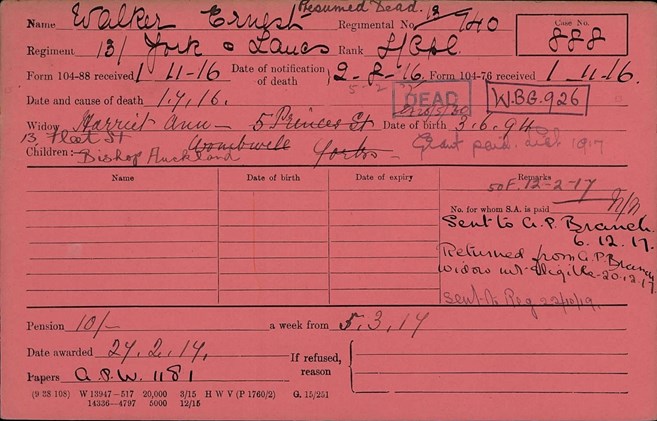 Presumed Dead.
Name Walker Ernest Regimental No. 18/740
Case No. 888
Regiment 13/ York & Lancs Rank L/Cpl
Form 104-88 received 1-11-16 Date of notification of death 2-8-16. Form 104-76 received 1-11-16.
Date and cause of death 1.7.16. DEAD W.B.G. 926
Widow Harriet Ann 5 Princes St Date of birth 3.6.94
13, Fleet St Wombwell Yorks Grant paid. 1917
Children: Bishop Auckland
Name Date of birth Date of expiry Remarks
50F. 12-2-17
No. for whom S.A. is paid
Sent to A.P. Branch.
6.12.17.
Returned from A.P. Branch
widow not eligible 20.12.17
Sent to Reg 22/10/19.
Pension 10/- a week from 5.3.17
Date awarded 27.2.17. If refused, reason
Papers A.P.W. 1181
(9 38 108) W 13947—517 20,000 3/15 H W V (P 1760/2) G. 15/251
14336—4797 5000 12/15